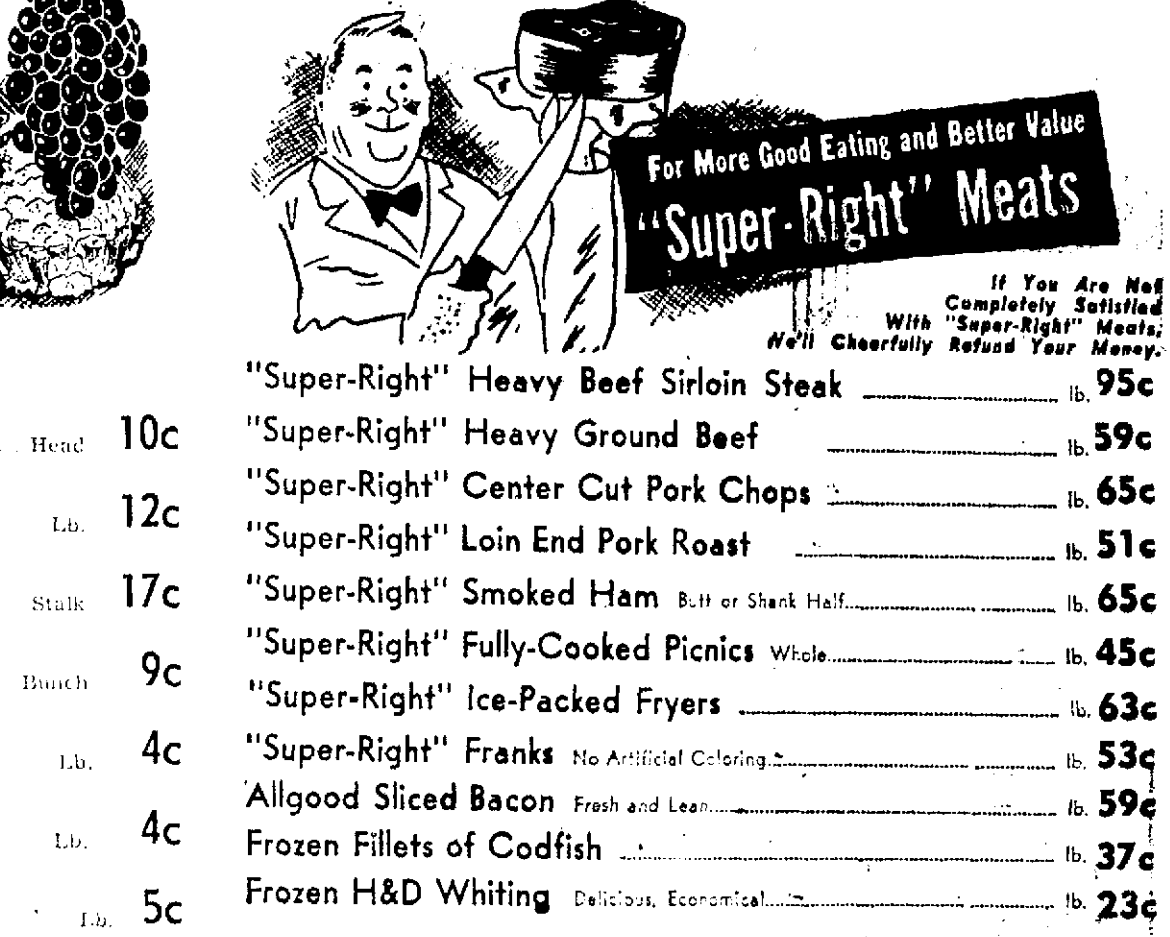 For More Good Eating and Better Value
"Super-Right" Meats
If You Are Not
Completely Satisfied
With "Super-Right" Meats,
We'll Cheerfully Refund Your Money.
Head 10c
Lb. 12c
Stalk 17c
Bunch 9c
Lb. 4c
Lb. 4c
Lb. 5c
"Super-Right" Heavy Beef Sirloin Steak lb. 95c
"Super-Right" Heavy Ground Beef lb. 59c
"Super-Right" Center Cut Pork Chops lb. 65c
"Super-Right" Loin End Pork Roast lb. 51c
"Super-Right" Smoked Ham Butt or Shank Half lb. 65c
"Super-Right" Fully-Cooked Picnics Whole lb. 45c
"Super-Right" Ice-Packed Fryers lb. 63c
"Super-Right" Franks No Artificial Coloring lb. 53c
Allgood Sliced Bacon Fresh and Lean lb. 59c
Frozen Fillets of Codfish lb. 37c
Frozen H&D Whiting Delicious, Economical lb. 23c